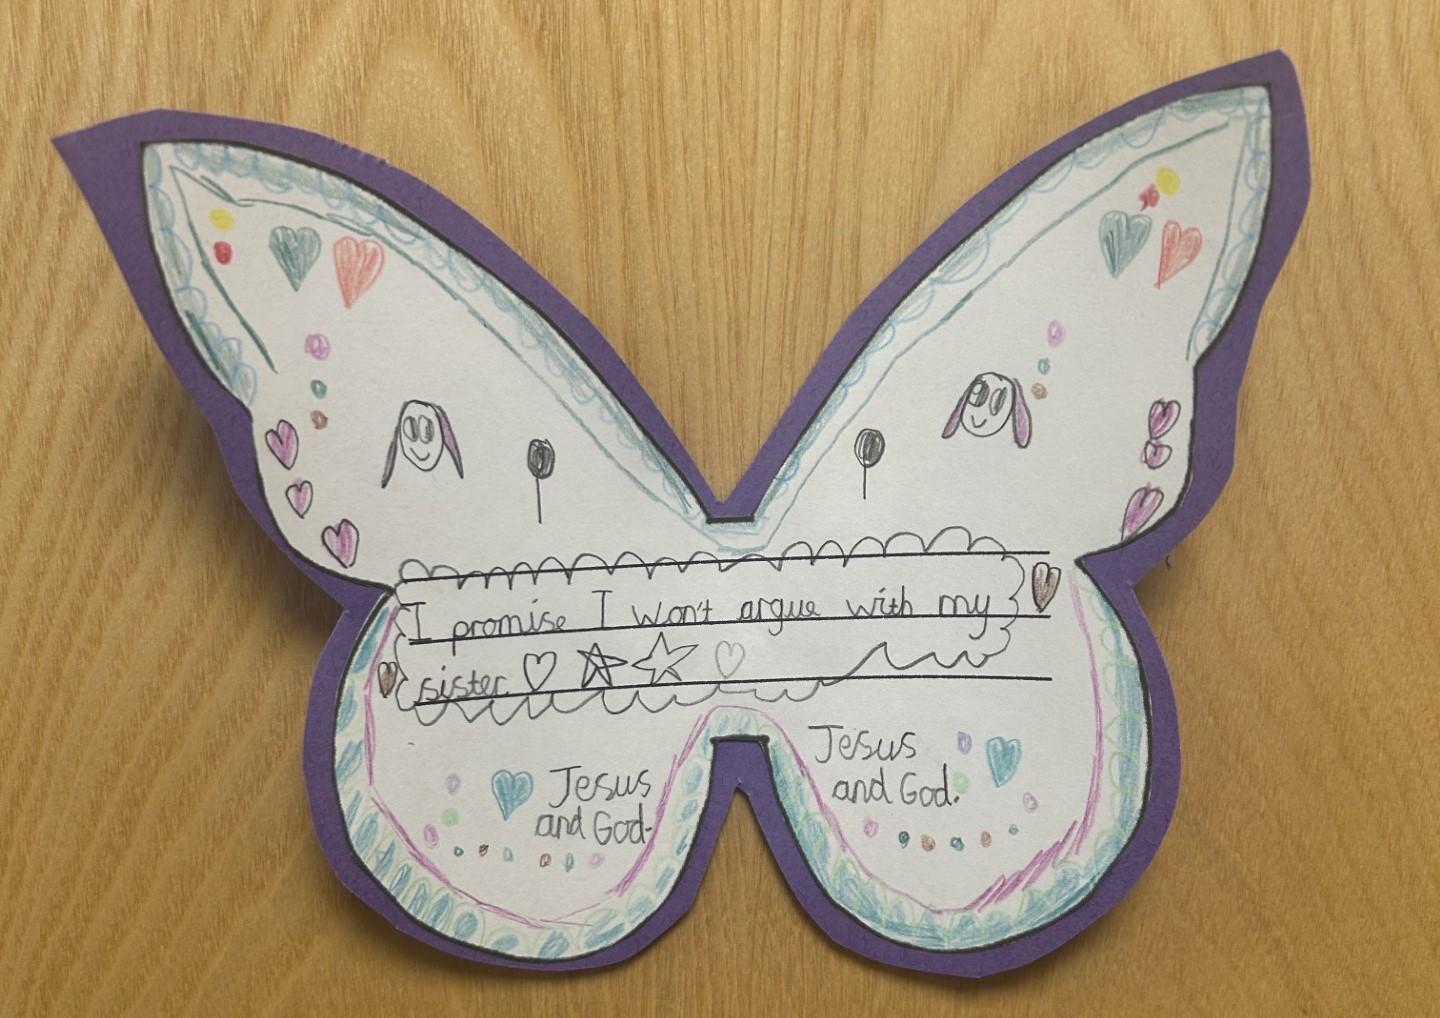 I promise I won't argue with my
sister
Jesus
and God.
Jesus
and God.